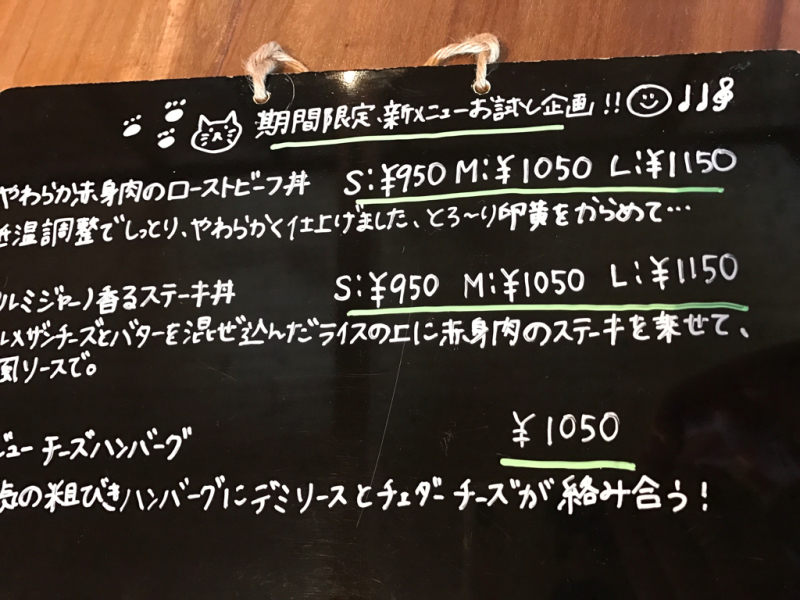 期間限定、新メニューお試し企画!!
やわらか赤身肉のローストビーフ丼 S:¥950 M:¥1050 L:¥1150
温調整でしっとり、やわらかく仕上げました、とろ〜り卵黄をからめて…
ルミジャーノ香るステーキ丼 S:¥950 M:¥1050 L:¥1150
ルメザンチーズとバターを混ぜ込んだライスの上に赤身肉のステーキを乗せて、
風ソースで。
ビューチーズハンバーグ ¥1050
の粗びきハンバーグにデミソースとチェダーチーズが絡み合う!